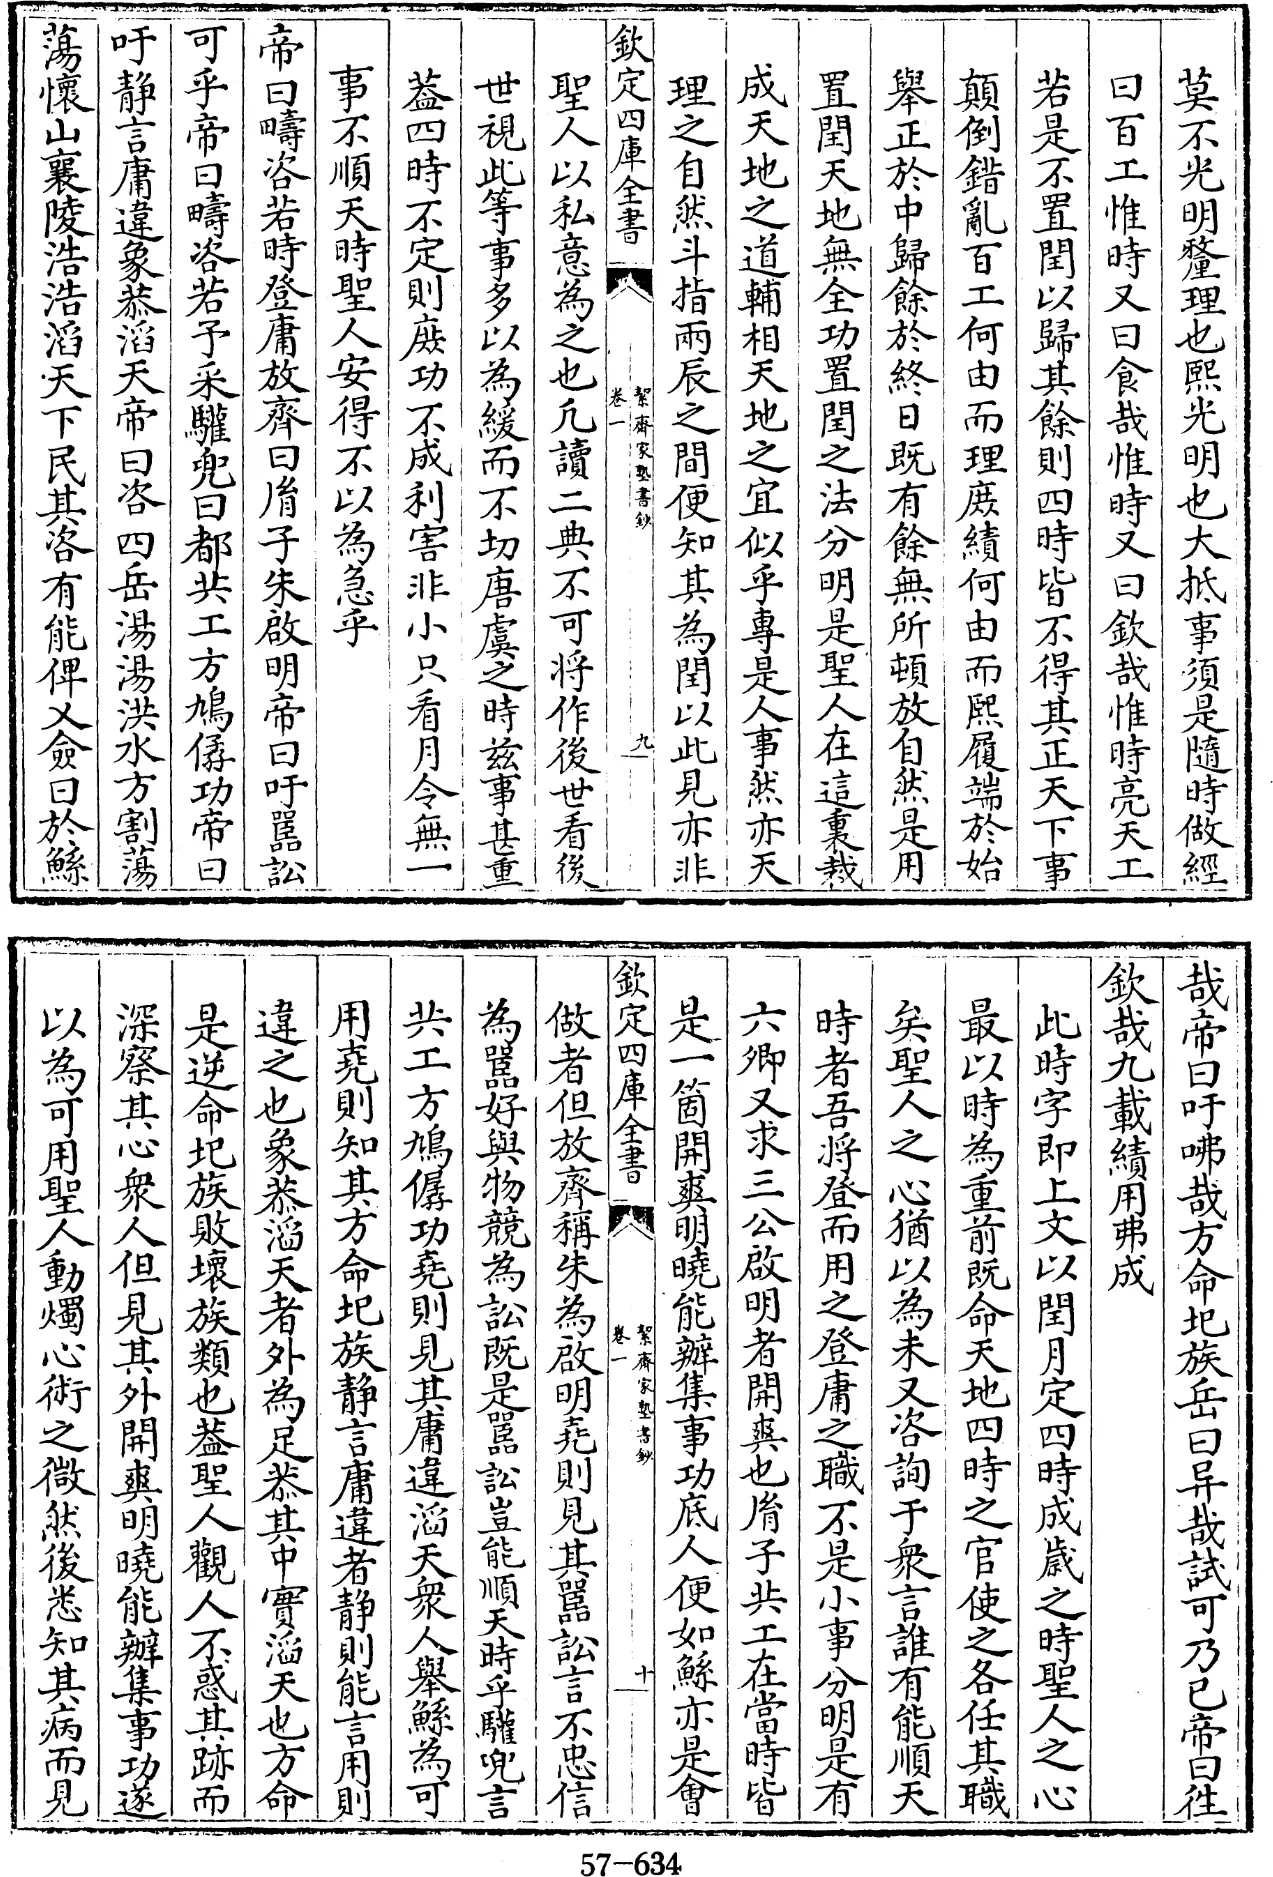 莫不光明釐理也熙光明也大抵事須是隨時做經
曰百工惟時又曰食哉惟時又曰欽哉惟時亮天工
若是不置閏以歸其餘則四時皆不得其正天下事
顛倒錯亂百工何由而理庶績何由而熙履端於始
舉正於中歸餘於終日既有餘無所頓放自然是用
置閏天地無全功置閏之法分明是聖人在這裏裁
成天地之道輔相天地之宜似乎專是人事然亦天
理之自然斗指兩辰之間便知其為閏以此見亦非
欽定四庫全書
絜齋家塾書鈔
卷一
九
聖人以私意為之也凡讀二典不可將作後世看後
世視此等事多以為緩而不切唐虞之時兹事甚重
葢四時不定則庶功不成利害非小只看月令無一
事不順天時聖人安得不以為急乎
帝曰疇咨若時登庸放齊曰胤子朱啟明帝曰吁嚚訟
可乎帝曰疇咨若予采驩兜曰都共工方鳩僝功帝曰
吁静言庸違象恭滔天帝曰咨四岳湯湯洪水方割蕩
蕩懷山襄陵浩浩滔天下民其咨有能俾乂僉曰於鯀
哉帝曰吁咈哉方命圯族岳曰异哉試可乃已帝曰往
欽哉九載績用弗成
此時字即上文以閏月定四時成歲之時聖人之心
最以時為重前既命天地四時之官使之各任其職
矣聖人之心猶以為未又咨詢于衆言誰有能順天
時者吾將登而用之登庸之職不是小事分明是有
六卿又求三公啟明者開爽也胤子共工在當時皆
是一箇開爽明曉能辦集事功底人便如鯀亦是會
欽定四庫全書
絜齋家塾書鈔
卷一
十
做者但放齊稱朱為啟明堯則見其嚚訟言不忠信
為嚚好與物競為訟既是嚚訟豈能順天時乎驩兜言
共工方鳩僝功堯則見其庸違滔天衆人舉鯀為可
用堯則知其方命圯族静言庸違者静則能言用則
違之也象恭滔天者外為足恭其中實滔天也方命
是逆命圯族敗壞族類也葢聖人觀人不惑其跡而
深察其心衆人但見其外開爽明曉能辦集事功遂
以為可用聖人動燭心術之微然後悉知其病而見
57-634